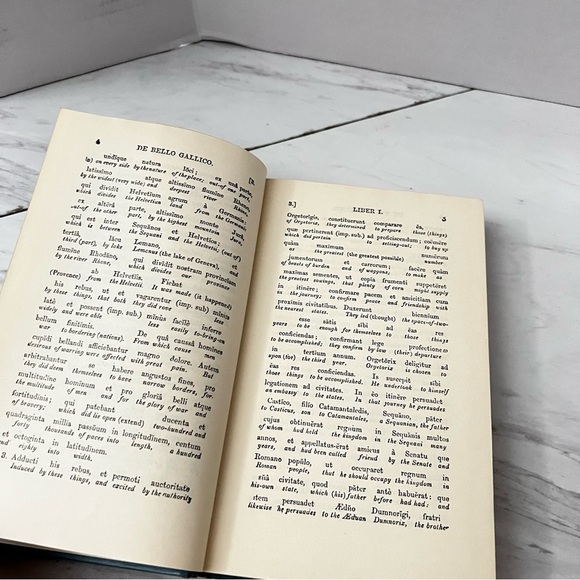 4
DE BELLO GALLICO.
[2.
undĭque natura lŏci; ex unā parte,
(a) on every side by the nature of the place; out of one part,
latissimo atque altissimo flumĭne Rheno,
by the widest (very wide) and deepest river Rhine,
qui dividit Helvetium agrum a Germanis,
which divides the Helvetian land from the Germans,
ex altĕrā parte, altissimo monte Jurā,
out of the other part, by the highest mountain Jura,
qui est inter Sequănos et Helvetios;
which is between the Sequani and the Helvetii; (out of)
Lacu Lemano, et
third (part), by lake Lemanus (the lake of Geneva), and
flumĭne Rhodăno, qui dividit nostram provinciam
by the river Rhone, which divides our province
(Provence) from the Helvetii. It was made (it happened)
ab Helvetiis. Fiebat
his rebus, ut et vagarentur (imp. sub) minus
by these things, that both they did rove less
latē et possent (imp. sub.) minus facĭlĕ inferre
widely and were able less easily to-bring-on
bellum finitimis. De quā causā homĭnes
war to bordering (nations). From which cause men
cupĭdi bellandi afficiebantur magno dolore. Autem
desirous of warring were affected with great pain. And
arbitrabantur se habere angustos fines, pro
they did deem themselves to have narrow borders, for
multitudine homĭnum et pro gloriā belli atque
the multitude of men and for the glory of war and
fortitudinis; qui patebant ducenta et
of bravery; which did lie open (extend) two-hundred and
quadraginta millia passŭum in longitudĭnem, centum
forty thousands of paces into length, a hundred
et octoginta in latitudĭnem.
and eighty into width.
3. Adducti his rebus, et permoti auctoritate
Induced by these things, and excited by the authority
3.]
LIBER I.
5
Orgetorĭgis, constituerunt comparare ĕa,
of Orgetorix, they determined to prepare those (things)
quæ pertinerent (imp. sub.) ad proficiscendum; coëmĕre
which did pertain to setting-out; to buy up
quàm maximum numĕrum
as (the greatest possible) number
jumentorum et carrorum; facĕre quàm
of beasts of burden and of waggons; to make as
maximas sementes, ut copia frumenti suppetĕret
the greatest sowings, that plenty of corn might supply
in itinĕre; confirmare pacem et amicitiam cum
in the journey; to confirm peace and friendship with
proximis civitatibus. Duxerunt biennium
the nearest states. They led (thought) the space-of-two-
esse sătis sibi ad ĕas res
years to be enough for themselves to those things
conficiendas; confirmant lege profectionem
to-be-accomplished; they confirm by law (their) departure
in tertium annum. Orgetŏrix deligitur ad
upon (for) the third year. Orgetorix is chosen to
ĕas res conficiendas. Is suscepit sibi
those things to be accomplished. He undertook to himself
legationem ad civitates. In ĕo itinĕre persuadet
an embassy to the states. In that journey he persuades
Castĭco, filio Catamantalĕdis, Sequăno, păter
to Casticus, son to Catamantales, a Sequanian, the father
cujus obtinuĕrat regnum in Sequănis multos
of whom had held the kingdom in the Sequani many
annos, et appellatus-ĕrat amicus à Senatu
years, and had been called friend by the Senate and
Romano popŭlo, ut occuparet regnum in
Roman people, that he should occupy the kingdom in
sŭā civitate, quod păter antè habuĕrat:
his-own state, which (his) father before had had: and
ĭtem persuadet Ædŭo Dumnorĭgi, fratri
likewise he persuades to the Æduan Dumnorix, the brother